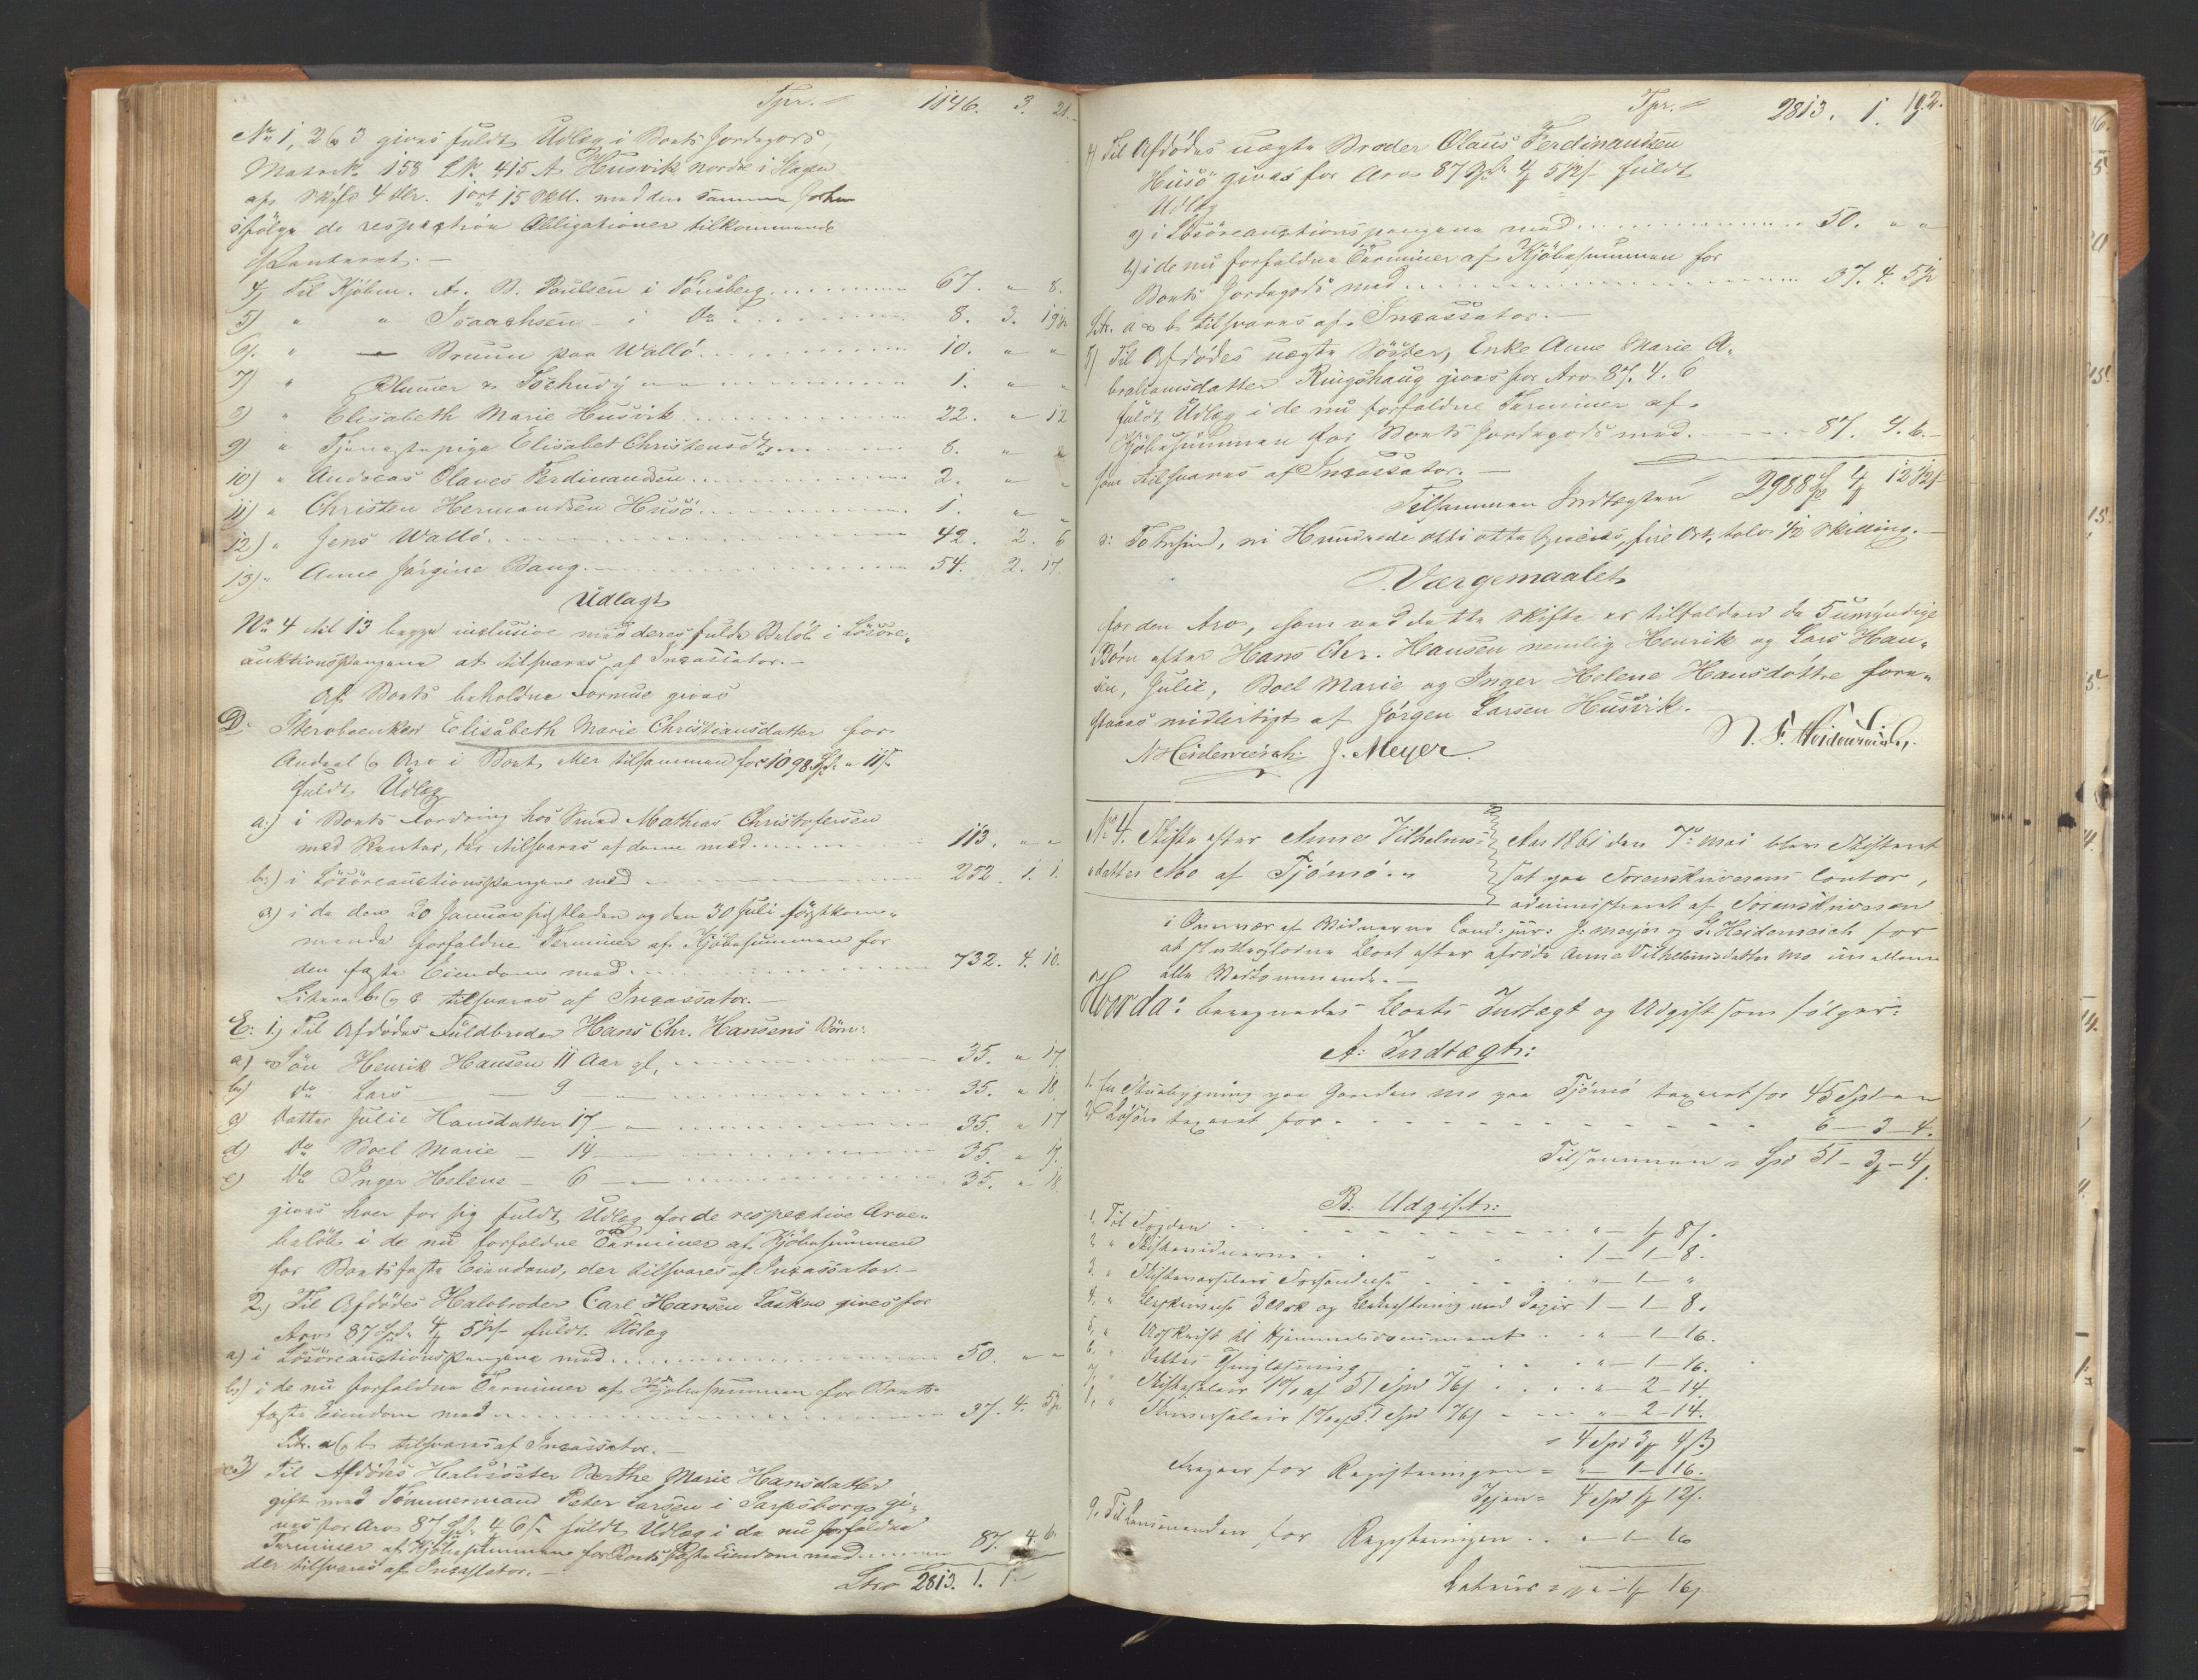 Tpr. 1146. 3. 21.
No 1, 2 & 3 gives fuldt Udlæg i Boets Jordegods,
Matr. No 158 LNo 415 A Husvik nordre i Slagen
af Skyld 4 dlr. 1 ort 15 skll. med den samme forhen
ifølge de respective Obligationer tilkommende
Panteret.
4) Til Kjøbm. A. B. Poulsen i Tønsberg 67. " 8.
5) " " Isaachsen i do 8. 3. 19½
6) " — Bruun paa Walló 10. " "
7) " Plumer & Tschudÿ 1. " "
8) " Elisabeth Marie Husvik 22. " 12
9) " Tjenestepige Elisabet Christensdt. 8. " "
10) " Andreas Olaves Ferdinandsen 2. " "
11) " Christen Hermandsen Husö 1. " "
12) " Jens Walló 42. 2. 6
13) " Anne Jørgine Bang 54. 2. 17
Udlagt
No 4 til 13 begge inclusive med deres fulde Beløb i Løsöre-
auktionspengene at tilsvares af Incassator.
Af Boets beholdne Formue gives
D. Sterboenken Elisabeth Marie Christiansdatter for
Andeel & Arv i Boet, eller tilsammen for 1098 Spd. " 11 s
fuldt Udlæg
a) i Boets Fordring hos Smed Mathias Christofersen
med Renter, der tilsvares af denne med 113. " "
b) i Løsöreauctionspengene med 252. 1. 1.
c) i de den 20 Januar sidstleden og den 30 Juli førstkom-
mende forfaldne Terminer af Kjøbesummen for
den faste Eiendom med 732. 4. 10.
Litera b & c tilsvares af Incassator.
E. 1) Til Afdødes Fuldbroder Hans Chr. Hansens Börn:
a) Søn Henrik Hansen 11 Aar gl. 35. " 17.
b) do Lars — 9 — 35. " 18.
c) Datter Julie Hansdatter 17 — 35. " 17
d) do Boel Marie — 14 — 35. " 17.
e) do Inger Helene — 6 — 35. " 18.
gives hver for sig fuldt Udlæg for de respective Arve-
beløb i de nu forfaldne Terminer af Kjøbesummen
for Boets faste Eiendom, der tilsvares af Incassator.
2) Til Afdødes Halvbroder Carl Hansen gives for
Arv 87 Spd. 4 5½ s fuldt Udlæg
a) i Løsöreauctionspengene med 50. " "
b) i de nu forfaldne Terminer af Kjøbesummen for Boets
faste Eiendom med 37. 4. 5½
Litr. a & b tilsvares af Incassator.
3) Til Afdødes Halvsöster Berthe Marie Hansdatter
gift med Tömmermand Peter Larsen i Sarpsborg gi-
ves for Arv 87 Spd. 4 6 s fuldt Udlæg i de nu forfaldne
Terminer af Kjøbesummen for Boets faste Eiendom med 87. 4. 6.
der tilsvares af Incassator.
Ltro 2813. 1. 1.
Tpr. 2813. 1. 1½.
4) Til Afdødes uægte Broder Olaus Ferdinandsen
Husö gives for Arv 87 Spd. 4 5½ s fuldt
Udlæg
a) i Løsöreauctionspengene med 50. " "
b) i de nu forfaldne Terminer af Kjøbesummen for
Boets Jordegods med 37. 4. 5½
Litr. a & b tilsvares af Incassator.
5) Til Afdødes uægte Söster, Enke Anne Marie A-
brahamsdatter Ringshaug gives for Arv 87. 4. 6
fuldt Udlæg i de nu forfaldne Terminer af
Kjøbesummen for Boets Jordegods med 87. 4. 6.
som tilsvares af Incassator.
Tilsammen Indtægten 2988 Spd 4 12½ s
3: To Tusind, ni Hundrede otti otte Species, fire Ort, tolv ½ Skilling.
Værgemaalet
for den Arv, som ved dette Skifte er tilfalden de 5 umyndige
Børn efter Hans Chr. Hansen nemlig Henrik og Lars Han-
sen, Julie, Boel Marie og Inger Helene Hansdøttre fore-
staaes midlertidigt af Jørgen Larsen Husvik.
N. F. Heidenreich.
N Heidenreich J. Meyer.
No 4. Skifte efter Anne Vilhelms-
datter Mo af Tjömö.
Aar 1861 den 7de Mai blev Skifteret
sat paa Sorenskriverens Contor,
administreret af Sorenskriveren
i Overvær af Vidnerne Cand. jur. J. Meyer og G. Heidenreich for
at slutte Boet efter afdøde Anne Vilhelmsdatter Mo imellem
alle Vedkommende.
Hvorda: beregnedes Boets Indtægt og Udgift som følger:
A: Indtægt:
1. En Stuebygning paa Gaarden Mo paa Tjömö taxeret for 45 Spd " "
2. Løsøre taxeret for 6 — 3 — 4.
Tilsammen = Spd 51 — 3 — 4.
B: Udgift:
1. Til Fogden " — 1 — 8.
2. " Skiftevidnerne 1 — 1 — 8.
3. " Forsendelse " — 1 — "
4. " 3 Ark og med Papir 1 — 1 — 8.
5. " Udskrift til Hjemmelsdocument " — 1 — 16.
6. " Dettes Thinglæsning " — 1 — 16.
7. " Skiftesalair 1% af 51 Spd 76 s " — 2 — 14.
1. " 1% af 51 Spd 76 s " — 2 — 14.
= 4 Spd 3 4 s
for Registreringen = " — 1 — 16.
Igjen = 4 Spd 1 12 s.
9. Til Lensmanden for Registreringen " — 1 — 16
Latus = 16